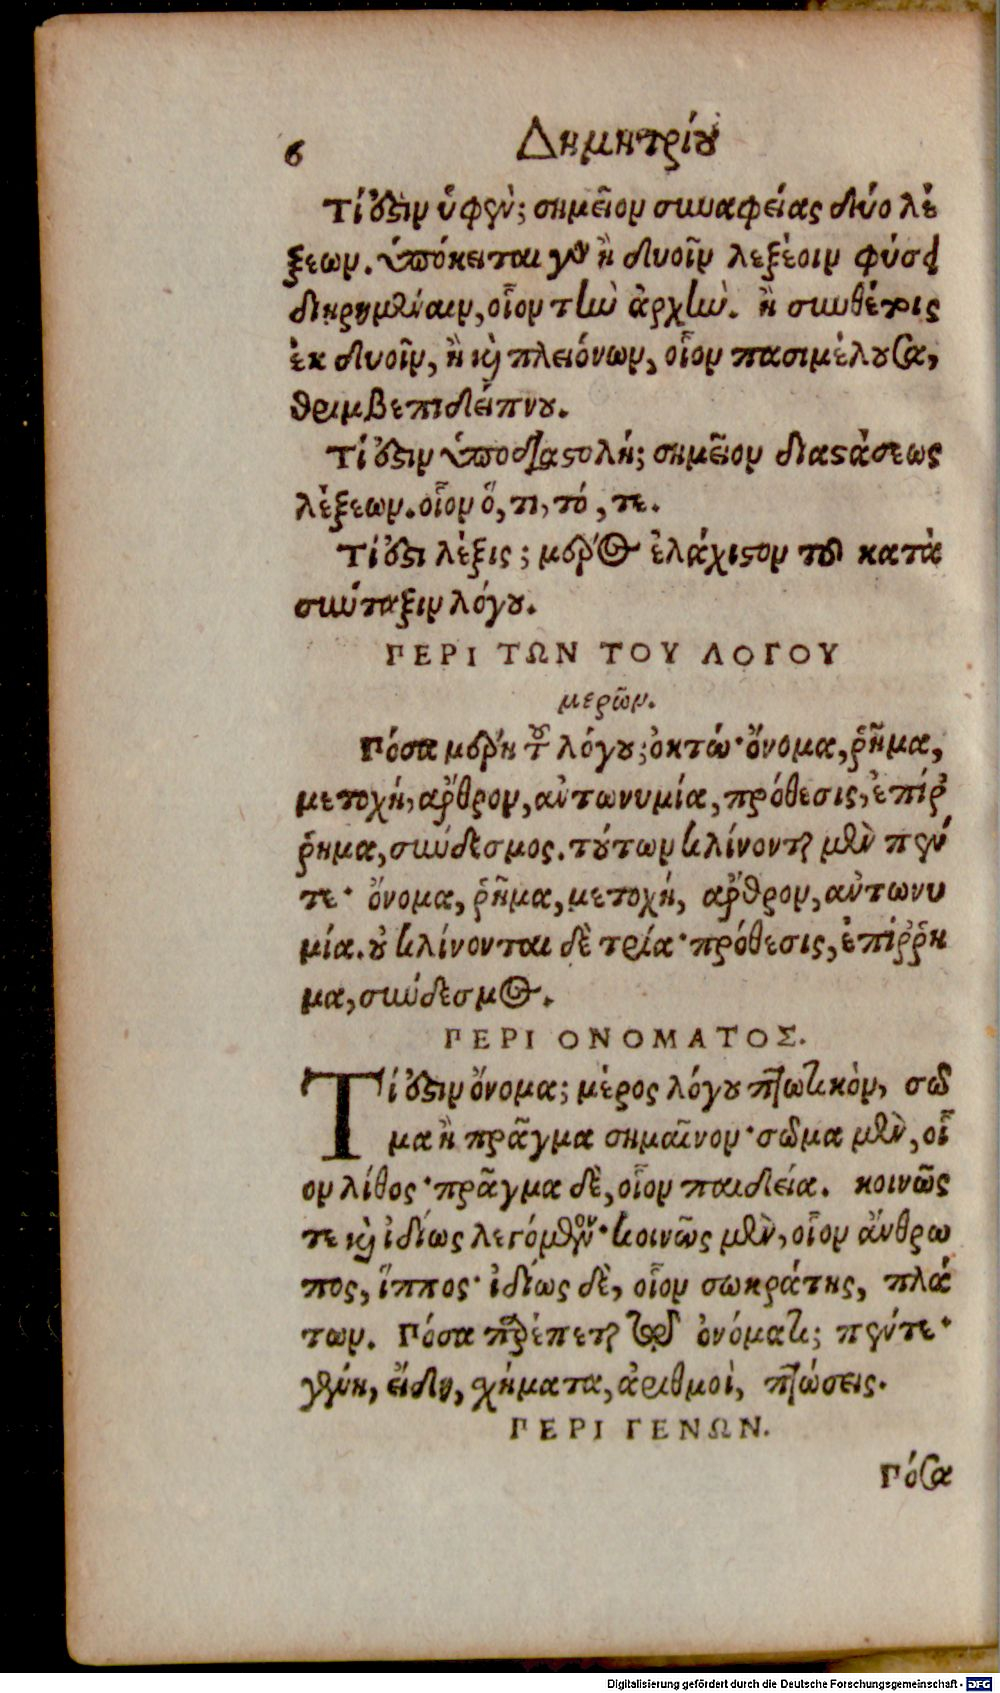 6 Δημητρίου
Τί ἐστιν ὑφέν; σημεῖον συναφείας δύο λέ
ξεων. ὑπόκειται γὰρ ἢ δυοῖν λεξέοιν φύσει
διῃρημέναιν, οἷον τὴν ἀρχήν. ἢ συνθέτοις
ἐκ δυοῖν, ἢ καὶ πλειόνων, οἷον πασιμέλουσα,
θριμβεπιδείπνου.
Τί ἐστιν ὑποδιαστολή; σημεῖον διαστάσεως
λέξεων. οἷον ὅ, τι, τό, τε.
Τί ἐστι λέξις; μέρος ἐλάχιστον τοῦ κατὰ
σύνταξιν λόγου.
ΠΕΡΙ ΤΩΝ ΤΟΥ ΛΟΓΟΥ
μερῶν.
Πόσα μέρη τοῦ λόγου; ὀκτώ· ὄνομα, ῥῆμα,
μετοχή, ἄρθρον, ἀντωνυμία, πρόθεσις, ἐπίρ
ῥημα, σύνδεσμος. τούτων κλίνονται μὲν πέν
τε· ὄνομα, ῥῆμα, μετοχή, ἄρθρον, ἀντωνυ
μία. οὐ κλίνονται δὲ τρία· πρόθεσις, ἐπίῤῥη
μα, σύνδεσμος.
ΠΕΡΙ ΟΝΟΜΑΤΟΣ.
Τί ἐστιν ὄνομα; μέρος λόγου πτωτικὸν, σῶ
μα ἢ πρᾶγμα σημαῖνον· σῶμα μὲν, οἷ
ον λίθος· πρᾶγμα δὲ, οἷον παιδεία. κοινῶς
τε καὶ ἰδίως λεγόμενον· κοινῶς μὲν, οἷον ἄνθρω
πος, ἵππος· ἰδίως δὲ, οἷον σωκράτης, πλά
των. Πόσα παρέπεται τῷ ὀνόματι; πέντε·
γένη, εἴδη, χήματα, ἀριθμοὶ, πτώσεις.
ΠΕΡΙ ΓΕΝΩΝ.
Πόσα
Digitalisierung gefördert durch die Deutsche Forschungsgemeinschaft - DFG